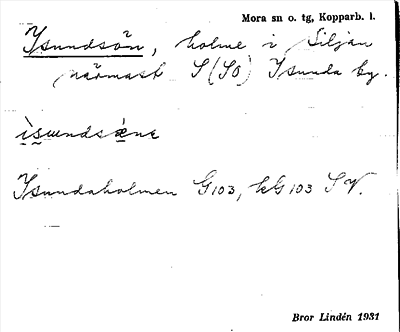 Mora sn o. tg, Kopparb. l.
Isundsön, holme i Siljan
närmast S (SO) Isunda by.
ìsundsǣne
Isundaholmen G103, kG103 SV.
Bror Lindén 1931